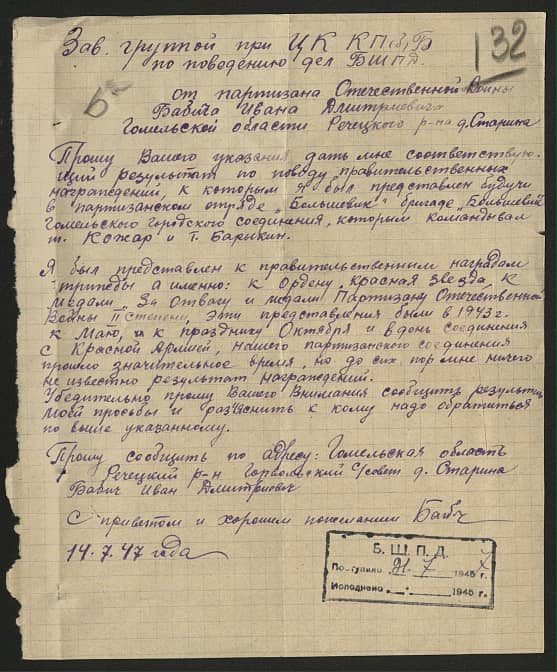 Зав. группой при ЦК КП(б)Б
по поводению дел БШПД.
132
от партизана Отечественной Войны
Бабича Ивана Дмитриевича
Гомельской области Речецкого р-на д. Старина
Прошу Вашего указания дать мне соответствую-
щий результат по поводу правительственных
награждений, к которым я был представлен будучи
в партизанском отряде „Большовик" бригаде „Большевик"
Гомельского городского соединения, которым командывал
т. Кожар и т. Барыкин.
Я был представлен к правительственним наградам
трижды а именно: к ордену, красная звезда, к
медали „За отвагу и медали Партизану Отечественной
Войны II степени, эти представления были в 1943г.
к Маю, и к празднику Октября и в день соединения
с Красной Армией, нашего партизанского соединения
прошло значительное время, но до сих пор мне ничего
не известно результат награждений.
Убедительно прошу Вашего Внимания сообщить результат
моей просьбы и раз'яснить к кому надо обратиться
по выше указанному.
Прошу сообщить по адресу: Гомельская область
Речецкий р-н Горвольский с/совет д. Старина
Бабич Иван Дмитриевич
С приветом и хорошим пожеланием Бабич
14.7.47 года
Б. Ш. П. Д.
Поступило 21. 7 1947 г.
Исполнено 194 г.